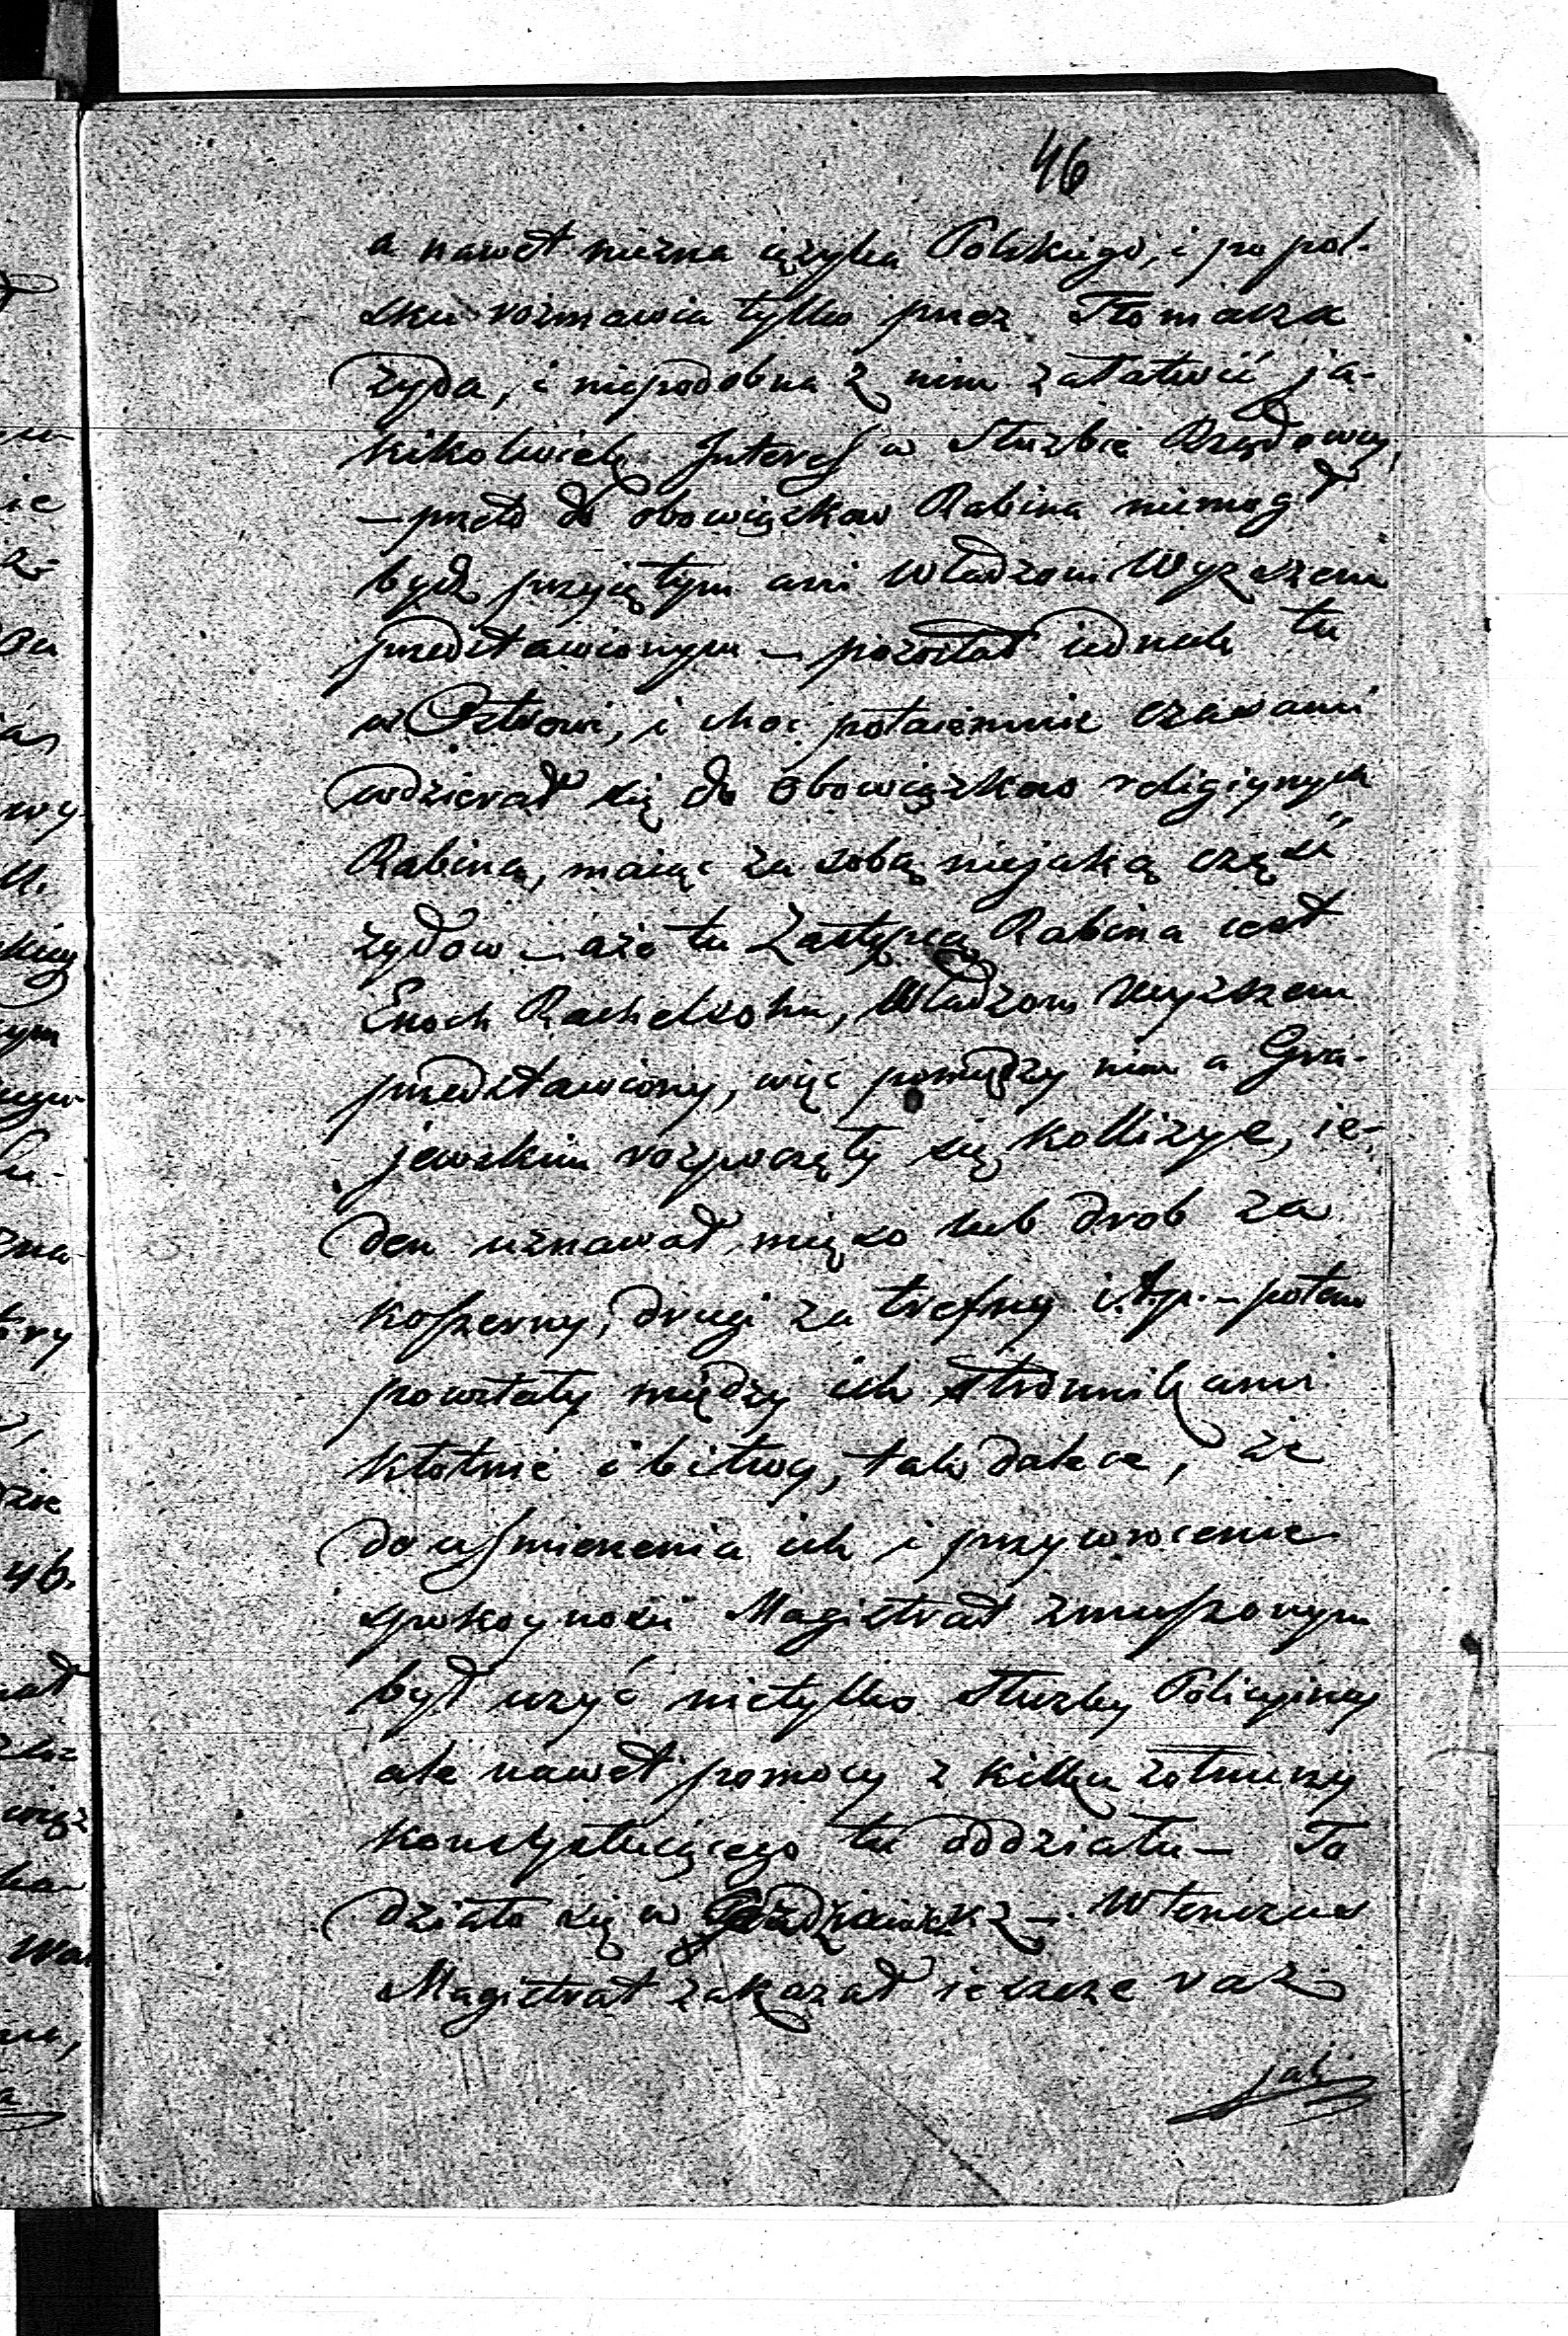 46
a nawet niezna ięzyka Polskiego, i po pol-
sku rozmawia tylko przez Tłomacza
żyda, i niepodobna z nim załatwić ja-
kikolwiek Interes w Służbie Rządowey,
— przeto do obowiązkow Rabina niemogł
bydź przyiętym ani Władzom Wyższem
przedstawionym — pozostał iednak tu
w Ostrowi, i choc potaiemnie czasami
wdzierał się do obowiązkow religiynych
Rabina, maiąc za sobą niejaką część
żydow — aże tu Zastępcą Rabina iest
Enoch Rachelsohn, Władzom wyższem
przedstawiony, więc pomiędzy nim a Gra-
jewskim rozpoczęły się kollizye, ie-
den uznawał mięso lub drob za
koszerny, drugi za trefny itp. — potem
powstały między ich stronnikami
kłotnie i bitwy, tak dalece, że
do uśmierzenia ich i przywrocenie
spokoyności Magistrat zmuszonym
był użyć nietylko Służby Policyiney
ale nawet pomocy z kilku żołnierzy
konsystuiącego tu oddziału — To
działo się w — Wtenczas
Magistrat zakazał ieszcze raz
jak